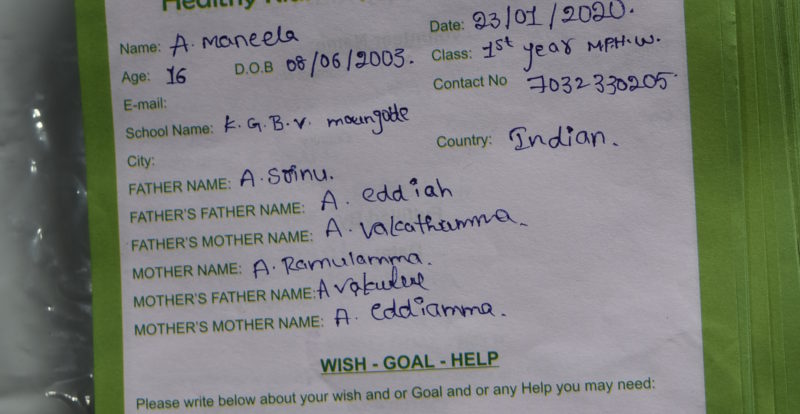 Healthy
Date: 23/01/2020.
Name: A. maneela
Class: 1st year MPH.W.
Age: 16 D.O.B 08/06/2003.
Contact No 7032330205
E-mail:
School Name: K.G.B.V. moungode
Country: Indian.
City:
FATHER NAME: A. Srinu.
FATHER'S FATHER NAME: A. eddiah
FATHER'S MOTHER NAME: A. Vakathamma
MOTHER NAME: A. Ramulamma.
MOTHER'S FATHER NAME: A
MOTHER'S MOTHER NAME: A. eddiamma.
WISH - GOAL - HELP
Please write below about your wish and or Goal and or any Help you may need: